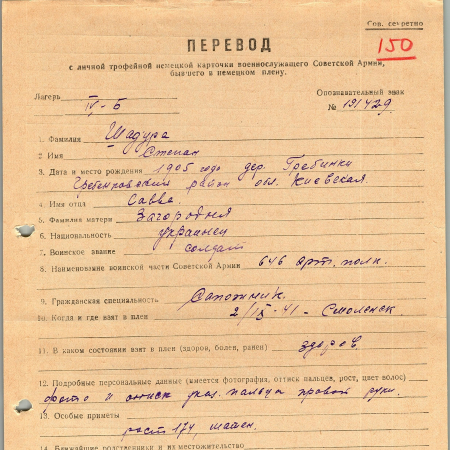 Сов. секретно
150
ПЕРЕВОД
с личной трофейной немецкой карточки военнослужащего Советской Армии,
бывшего в немецком плену.
Лагерь IV-Б
Опознавательный знак
№ 191429
1. Фамилия Шадура
2 Имя Степан
3. Дата и место рождения 1905 года дер. Гребинки
Гребенковский район обл. Киевская
4. Имя отца Савва
5. Фамилия матери Загородняя
6. Национальность украинец
7. Воинское звание солдат
8. Наименование воинской части Советской Армии 646 арт. полк.
9. Гражданская специальность Сапожник.
10. Когда и где взят в плен 2/IX-41 - Смоленск
11. В каком состоянии взят в плен (здоров, болен, ранен) здоров.
12. Подробные персональные данные (имеется фотография, оттиск пальцев, рост, цвет волос)
фото и оттиск указ. пальца правой руки.
13. Особые приметы
рост 174,
14. Ближайшие родственники и их местожительство